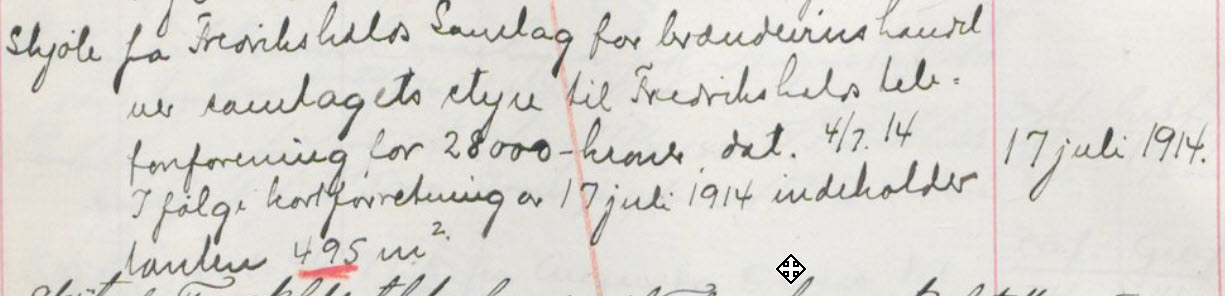 Skjöte fra Fredrikshalds Samlag for brændevinshandel
ver samlagets styre til Fredrikshalds tele=
fonforening for 28000 - kroner, dat. 4/7. 14
17 juli 1914.
I følge kartforretning av 17 juli 1914 indeholder
tomten 495 m².